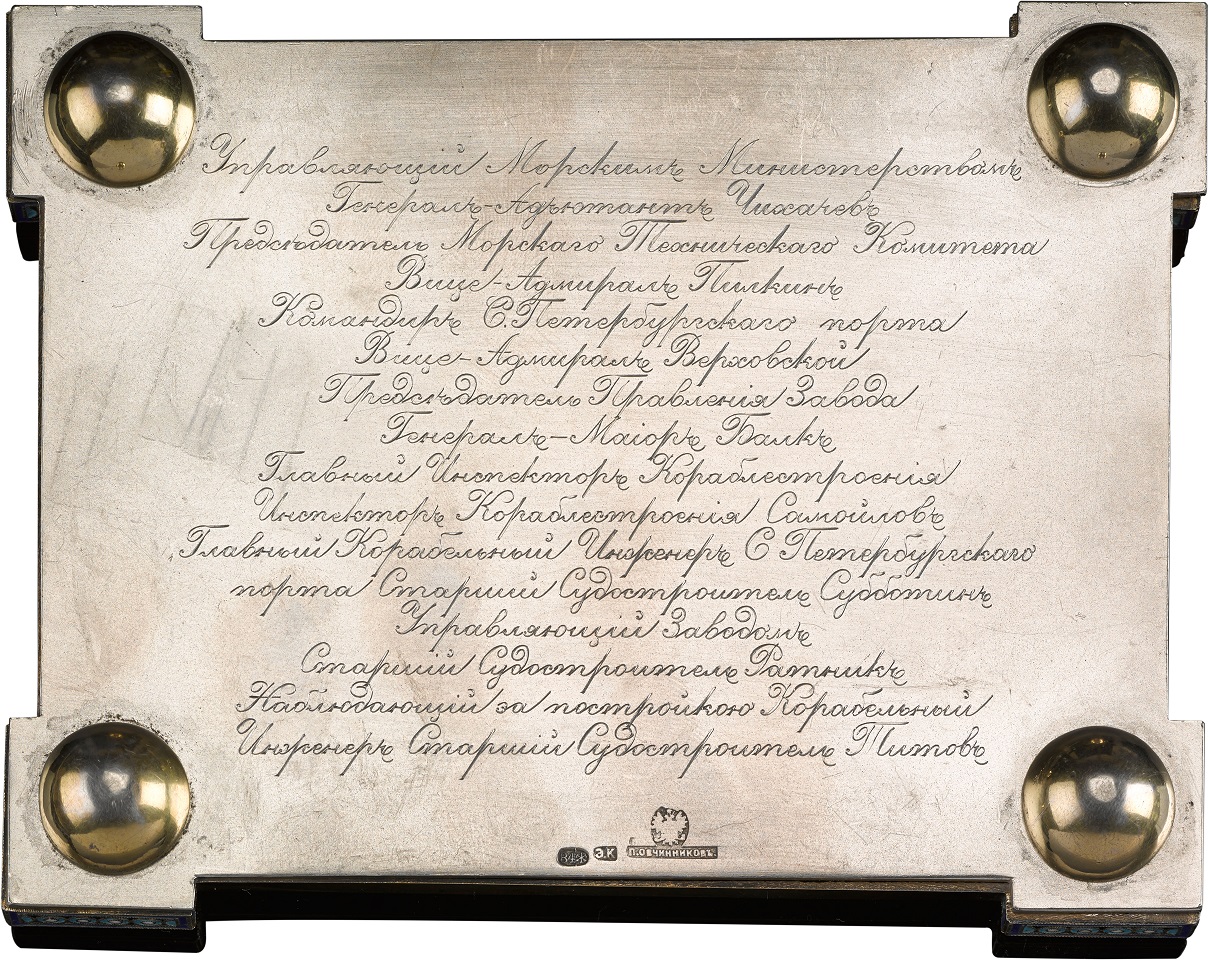 Управляющій Морскимъ Министерствомъ
Генералъ-Адъютантъ Чихачевъ
Предсѣдатель Морскаго Техническаго Комитета
Вице-Адмиралъ Пилкинъ
Командиръ С.Петербургскаго порта
Вице-Адмиралъ Верховской
Предсѣдатель Правленія Завода
Генералъ-Маіоръ Балкъ
Главный Инспекторъ Кораблестроенія
Инспекторъ Кораблестроенія Самойловъ
Главный Корабельный Инженеръ С Петербургскаго
порта Старшій Судостроитель Субботинъ
Управляющій Заводомъ
Старшій Судостроитель Ратникъ
Наблюдающій за постройкою Корабельный
Инженеръ Старшій Судостроитель Титовъ
84 Э.К П.ОВЧИННИКОВЪ.